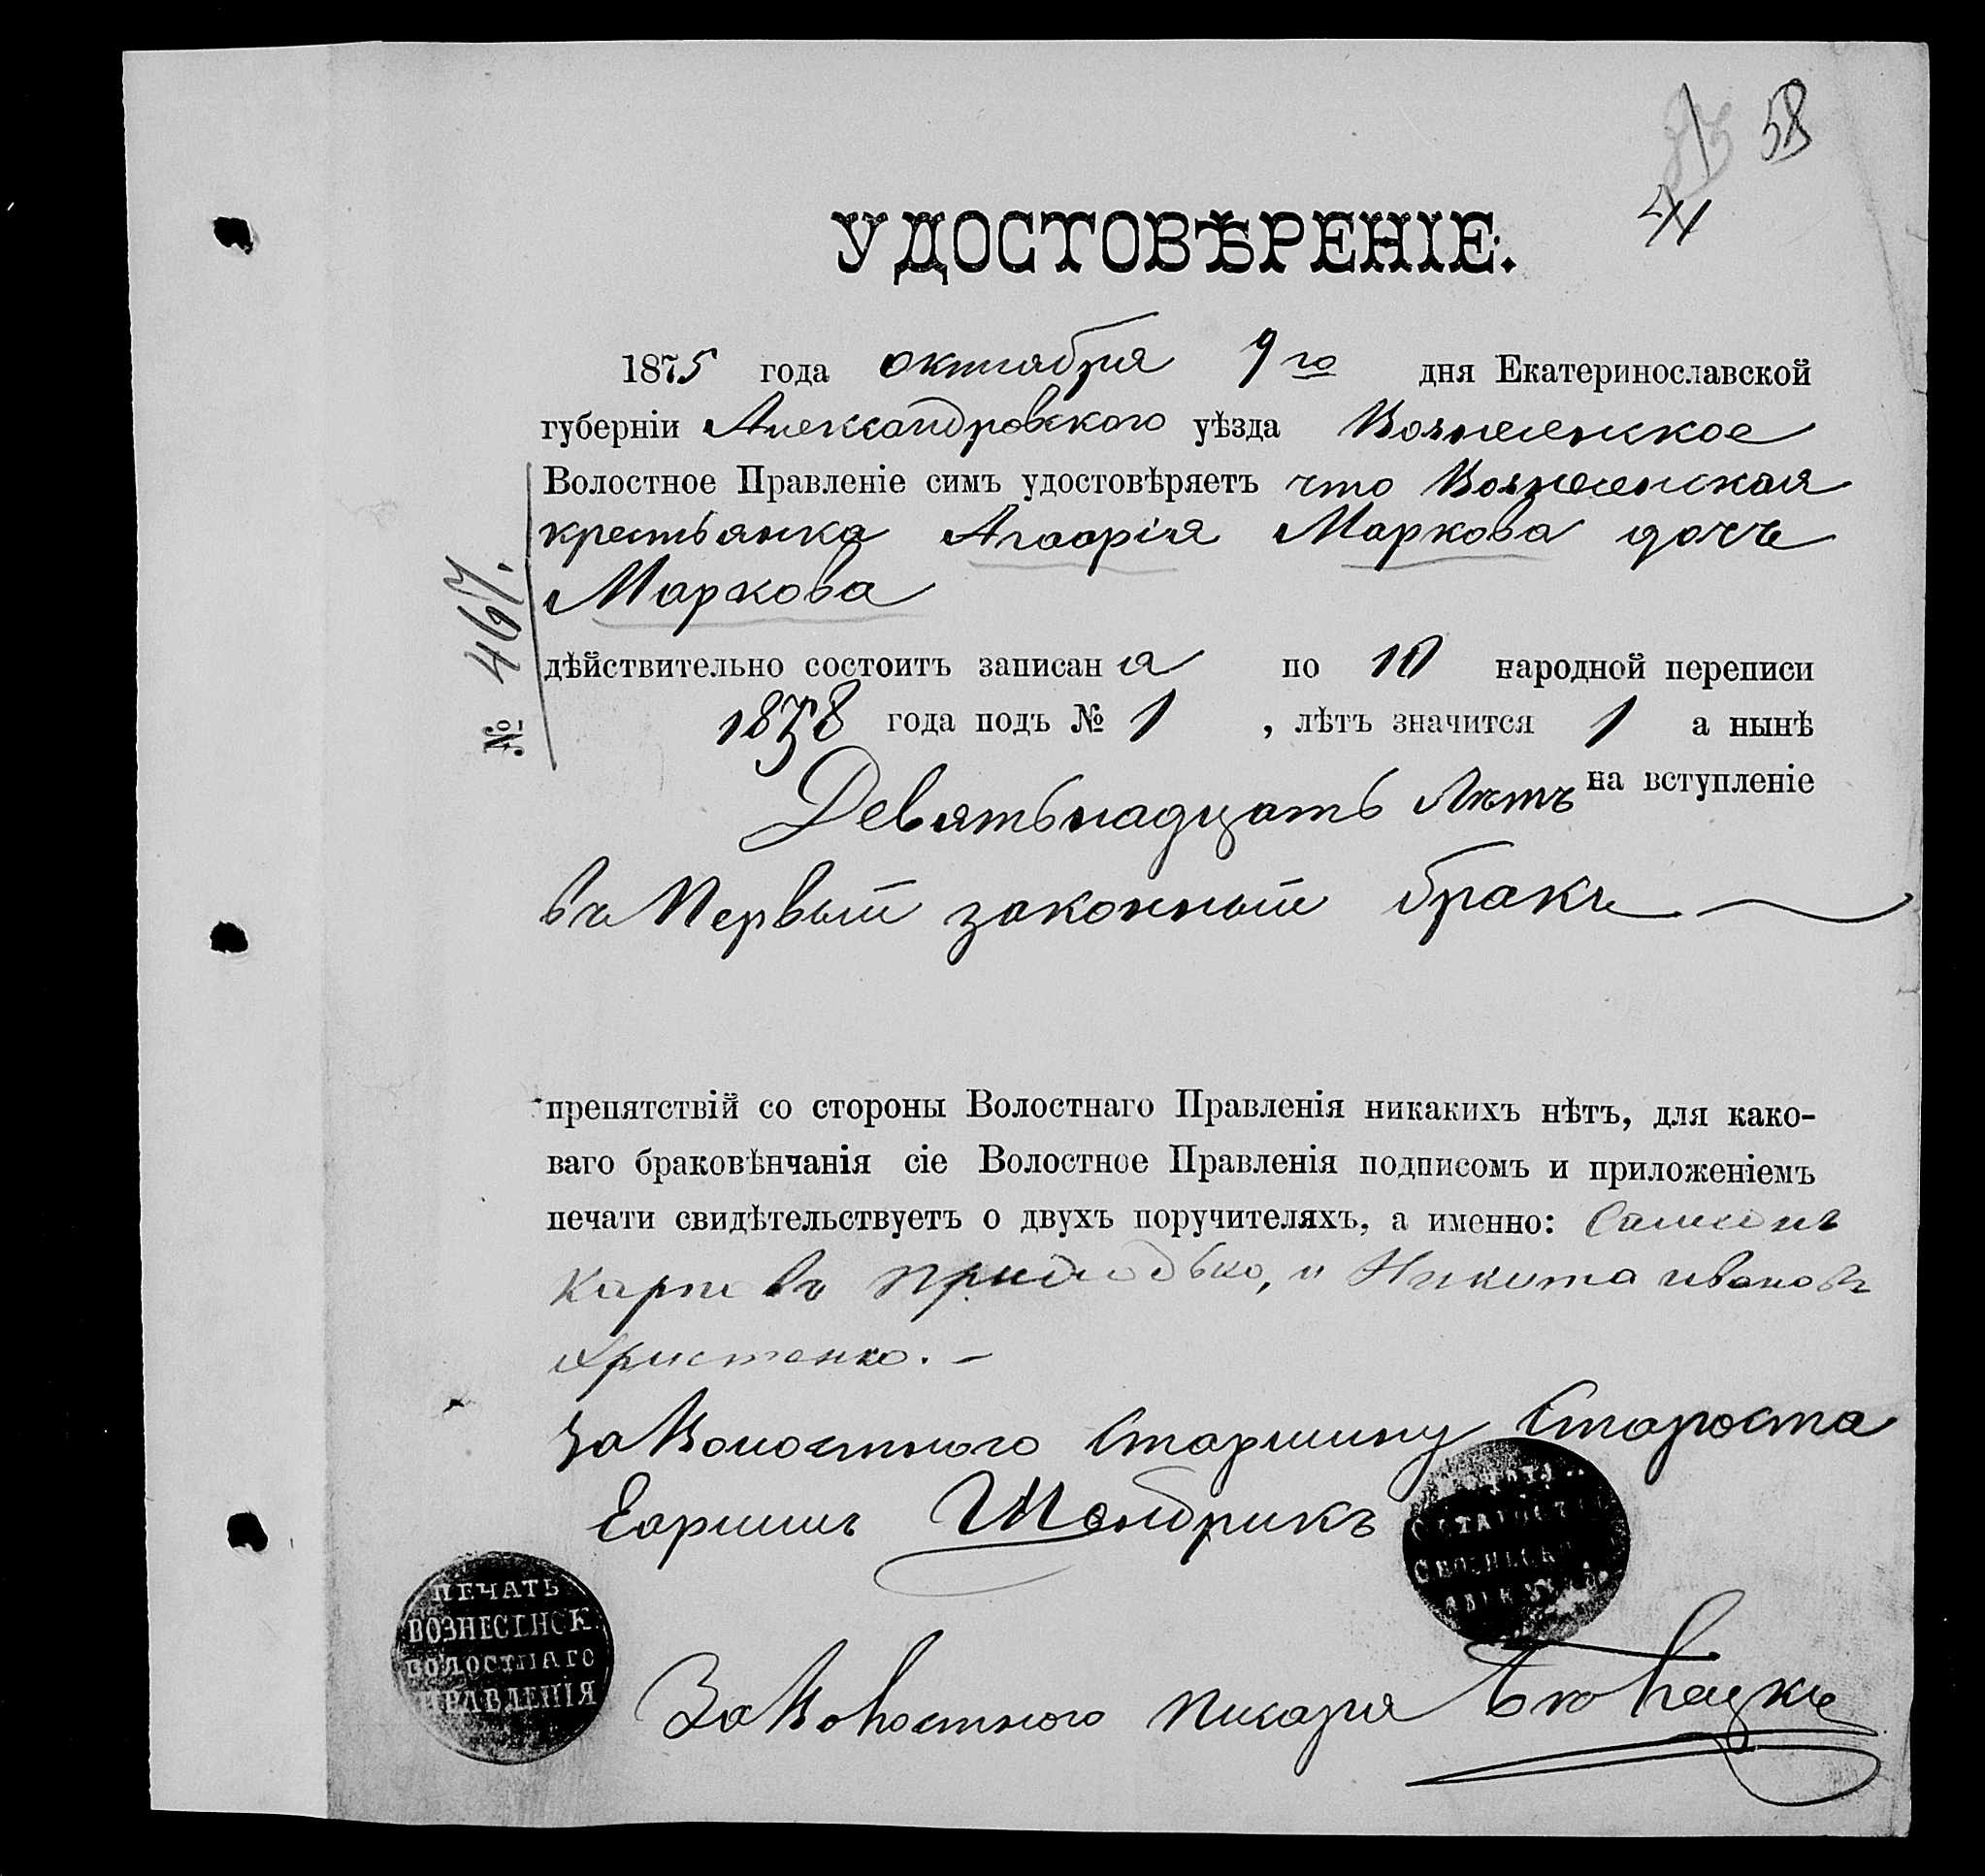 58
УДОСТОВѢРЕНІЕ.
1875 года октября 9го дня Екатеринославской
губерніи Александровского уѣзда Вознесенское
Волостное Правленіе симъ удостовѣряетъ что Вознесенская
крестьянка Агафрія Маркова дочь
Маркова
№ 467.
дѣйствительно состоитъ записана по 10 народной переписи
1858 года подъ № 1 , лѣтъ значится 1 а нынѣ
Девятьнадцать лѣтъ на вступленіе
въ Первый законный бракъ
препятствій со стороны Волостнаго Правленія никакихъ нѣтъ, для како-
ваго браковѣнчанія сіе Волостное Правленія подписомъ и приложеніемъ
печати свидѣтельствуетъ о двухъ поручителяхъ, а именно:
Карповъ Приходько, и Никита ивановъ
Христенко. –
За Волостного Старшину Староста
ПЕЧАТЬ
ВОЗНЕСЕНСК.
ВОЛОСТНАГО
ПРАВЛЕНІЯ
За Волостного писаря